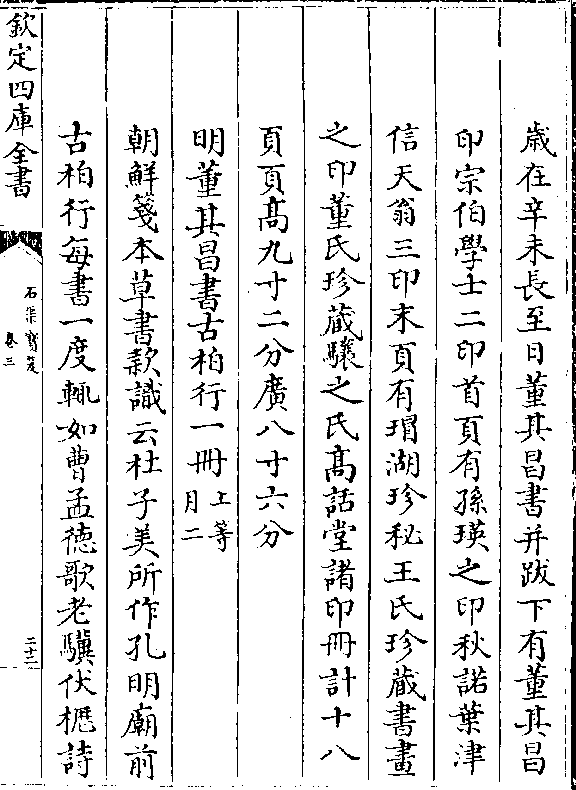 歳在辛未長至日董其昌書并跋下有董其昌
印宗伯學士二印首頁有孫瑛之印秋諾葉津
信天翁三印末頁有瑁湖珍秘王氏珍藏書畫
之印董氏珍蔵驤之氏髙話堂諸印冊計十八
頁頁髙九寸二分廣八寸六分
明董其昌書古柏行一冊上等
月二
朝鮮箋本草書款識云杜子美所作孔明廟前
古柏行每書一度輒如曹孟徳歌老驥伏櫪詩
欽定四庫全書
石渠寳笈
卷三
三十二